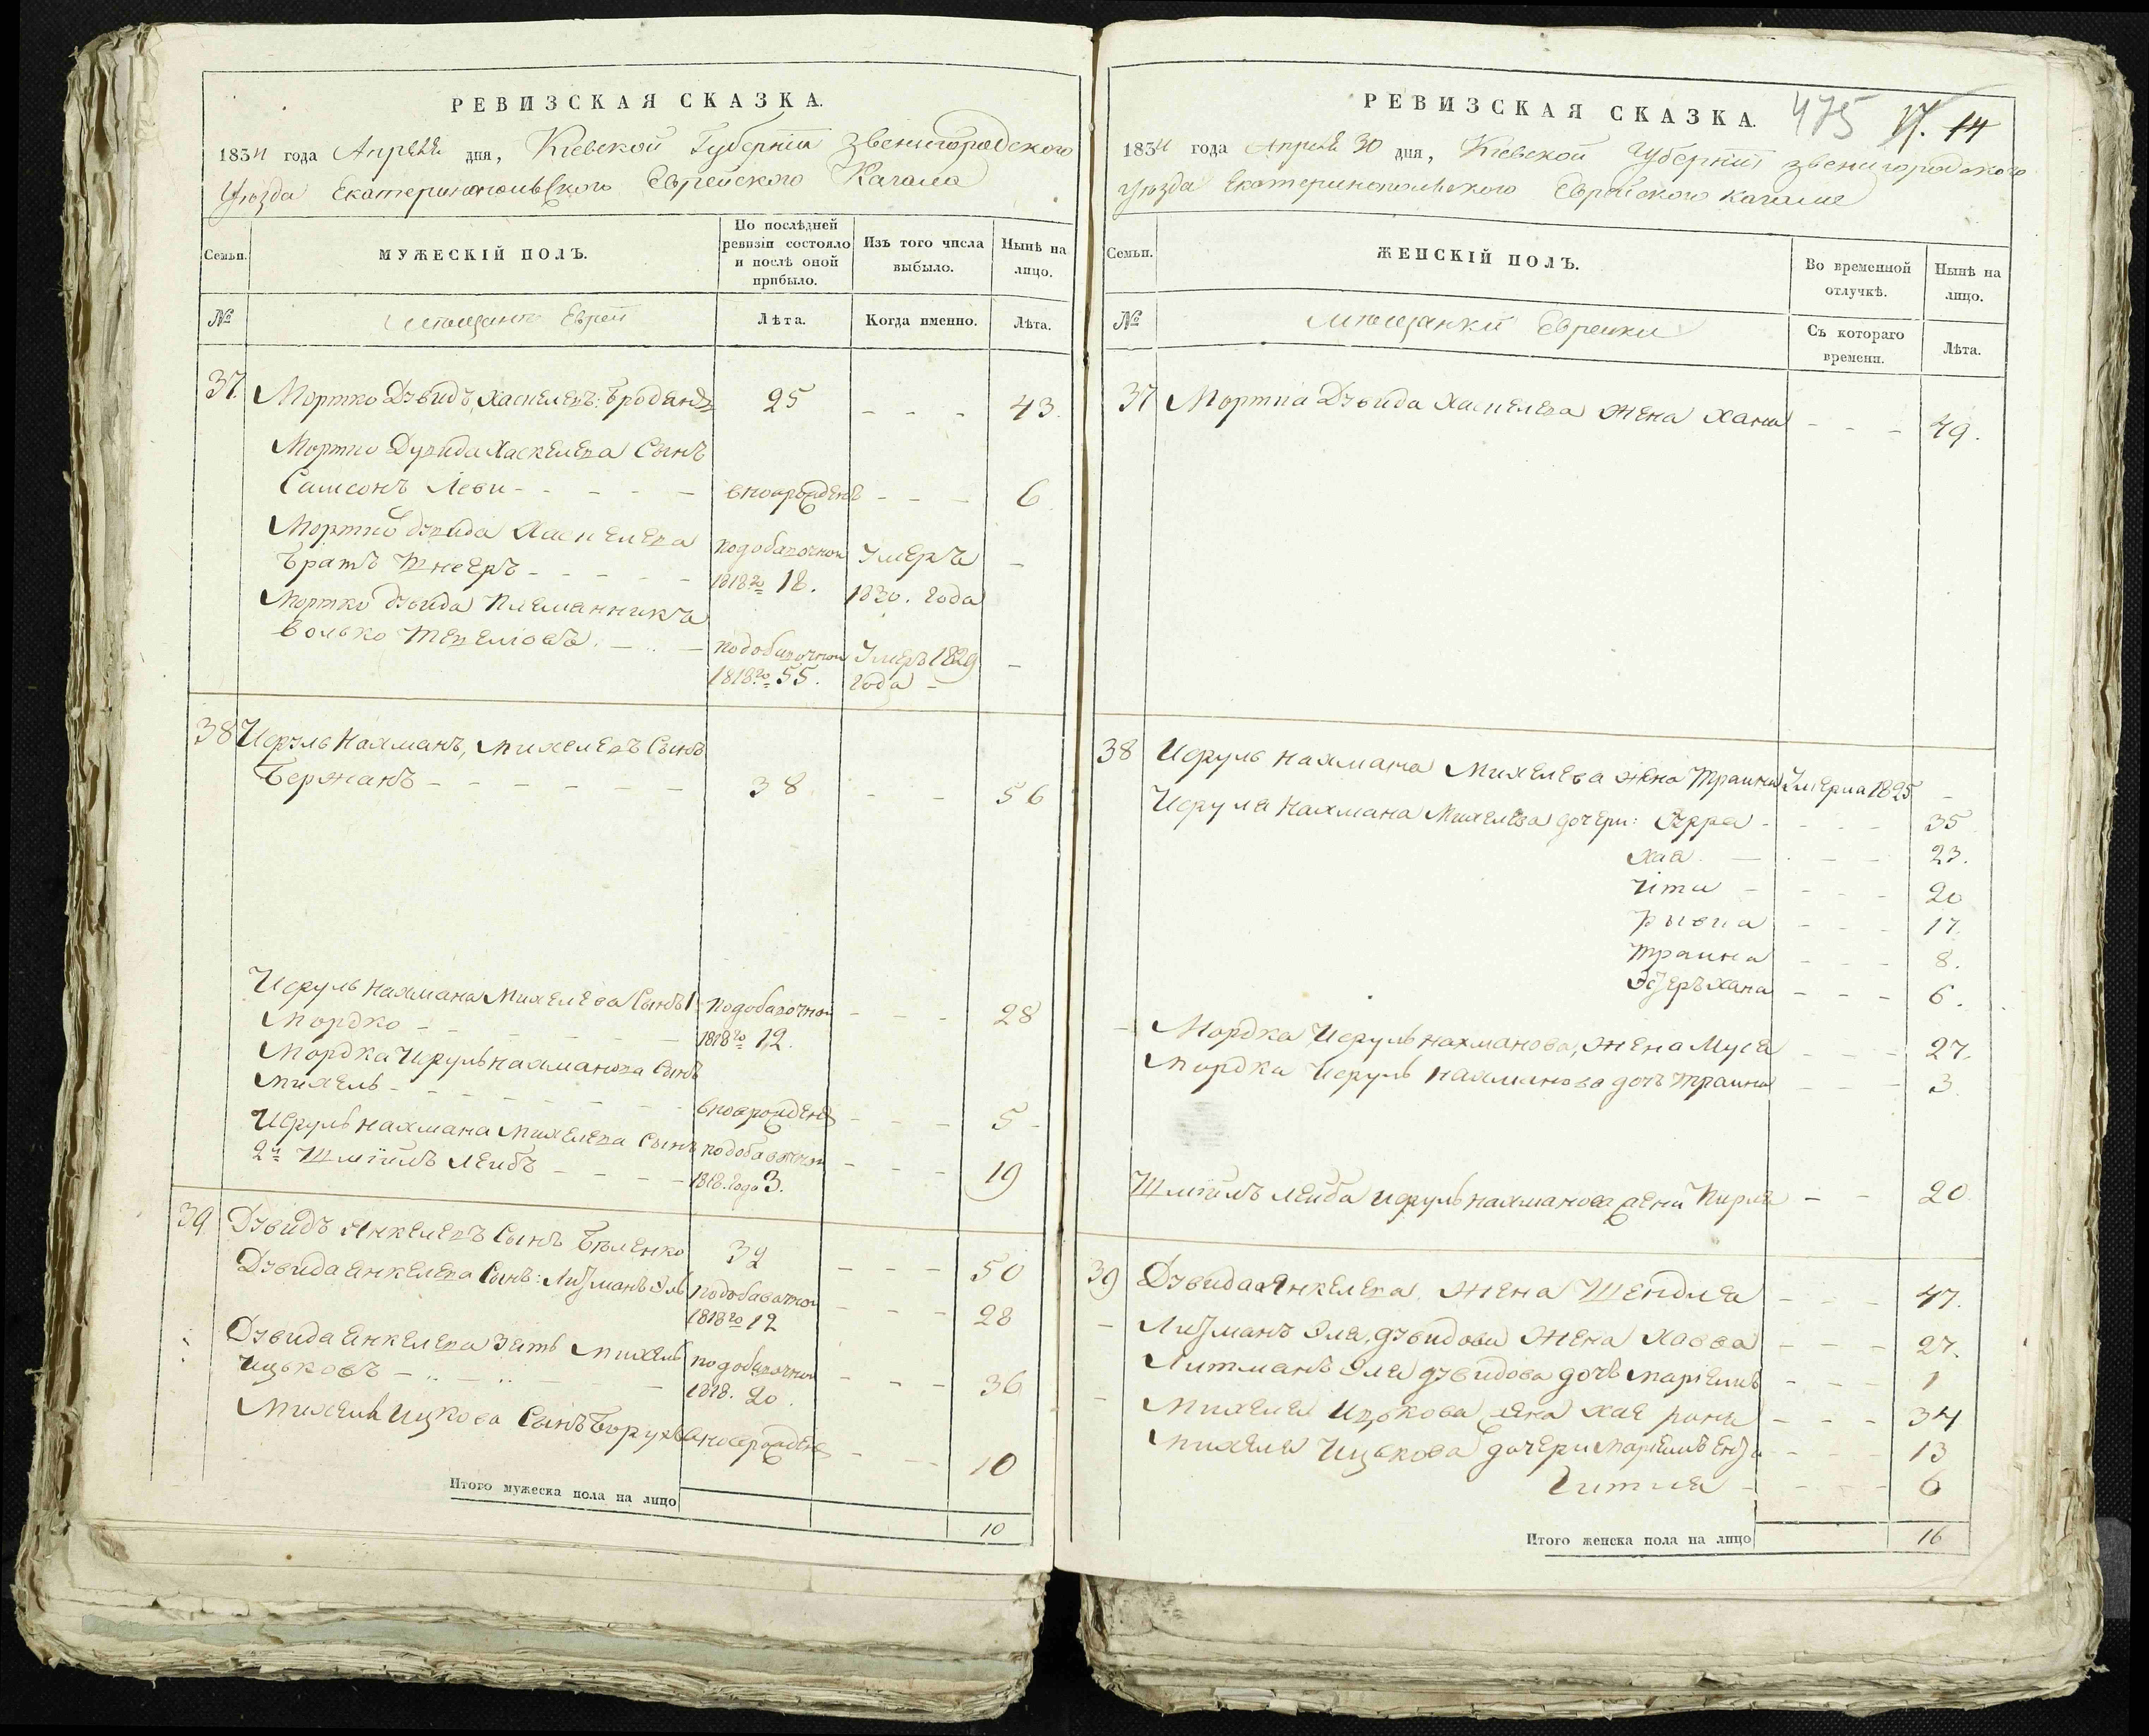 РЕВИЗСКАЯ СКАЗКА.
1834 года Апреля дня, Кіевской Губерніи Звенигородского
Уѣзда Екатеринопольского Еврейского Кагала
Семьи.
МУЖЕСКІЙ ПОЛЪ.
По послѣдней ревизіи состояло и послѣ оной прибыло.
Изъ того числа выбыло.
Нынѣ на лицо.
№
Мѣщане Евреи
Лѣта.
Когда именно.
Лѣта.
37. Мортко Дувидъ, Хаскелевъ: 25 - - - 43.
Мортко Дувида Хаскелева Сынъ
Самсонъ Леви - - - - - вноврожденъ - - - 6
Мортко дувида Хаскелева
братъ Шнееръ - - - - - подобавочной 1818го 18. Умеръ 1830. года -
Мортко дувида племанникъ
Волько - подобавочной 1818го 55. Умеръ 1829 года -
38 Исруль Нахманъ, Михелевъ Сынъ
Бержанъ - - - - - - 38 - - 56
Исруль Нахмана Михелева Сынъ 1й подобавочной - - - 28
Мордко - - - - - 1818го 12.
Мордка Исруль нахманова Сынъ
Михель - - - - - - вноврожденъ - - - 5 -
Исруль нахмана Михелева Сынъ подобавочной - - - 19
2й Шмуйлъ Леибъ - - - - 1818. года 3.
39 Дувидъ Янкелевъ Сынъ Беленко 32 - - - 50
Дувида Янкелева Сынъ: Литманъ Эль подобавочной - - - 28
1818го 12
Дувида Янкелева зять Михель подобавочной - - - 36
Ицьковъ - - - 1818. 20.
Михеля Ицкова Сынъ Борухъ вноврожденъ - - - 10
Итого мужеска пола на лицо
10
РЕВИЗСКАЯ СКАЗКА.
475 14
1834 года Апреля 30 дня, Кіевской Губерніи звенигородского
уѣзда Екатеринопольского Еврейского Кагала
Семьи.
ЖЕНСКІЙ ПОЛЪ.
Во временной отлучкѣ.
Нынѣ на лицо.
№
Мѣщанки Евреики
Съ котораго времени.
Лѣта.
37 Мортка Дувида Хаскелева жена Хана - - - 49.
38 Исруль Нахмана Михелева жена Траина Умерла 1825 -
Исруля Нахмана Михелева дочери: - - - 35
Хая. - - - 23.
- - - 20
Рывка - - - 17.
Траина - - - 8.
Эстеръ хана - - - 6.
- Мордка Исруль нахманова, жена Муся - - - 27.
Мордка Исруль нахманова дочь Траина - - - 3
Шмуйлъ Леиба Исруль нахманова жена Перля - - 20
39 Дувида Янкелева, жена Шендля - - - 47.
- Литманъ Эля, дувидова жена Хавва - - - 27.
Литманъ Эля дувидова дочь Маріемъ - - - 1
- Михеля Ицькова жена Хае - - - 34
Михеля Ицькова дочери Маріемъ Ента - - - 13
Гитля - - - - 6
Итого женска пола на лицо
16